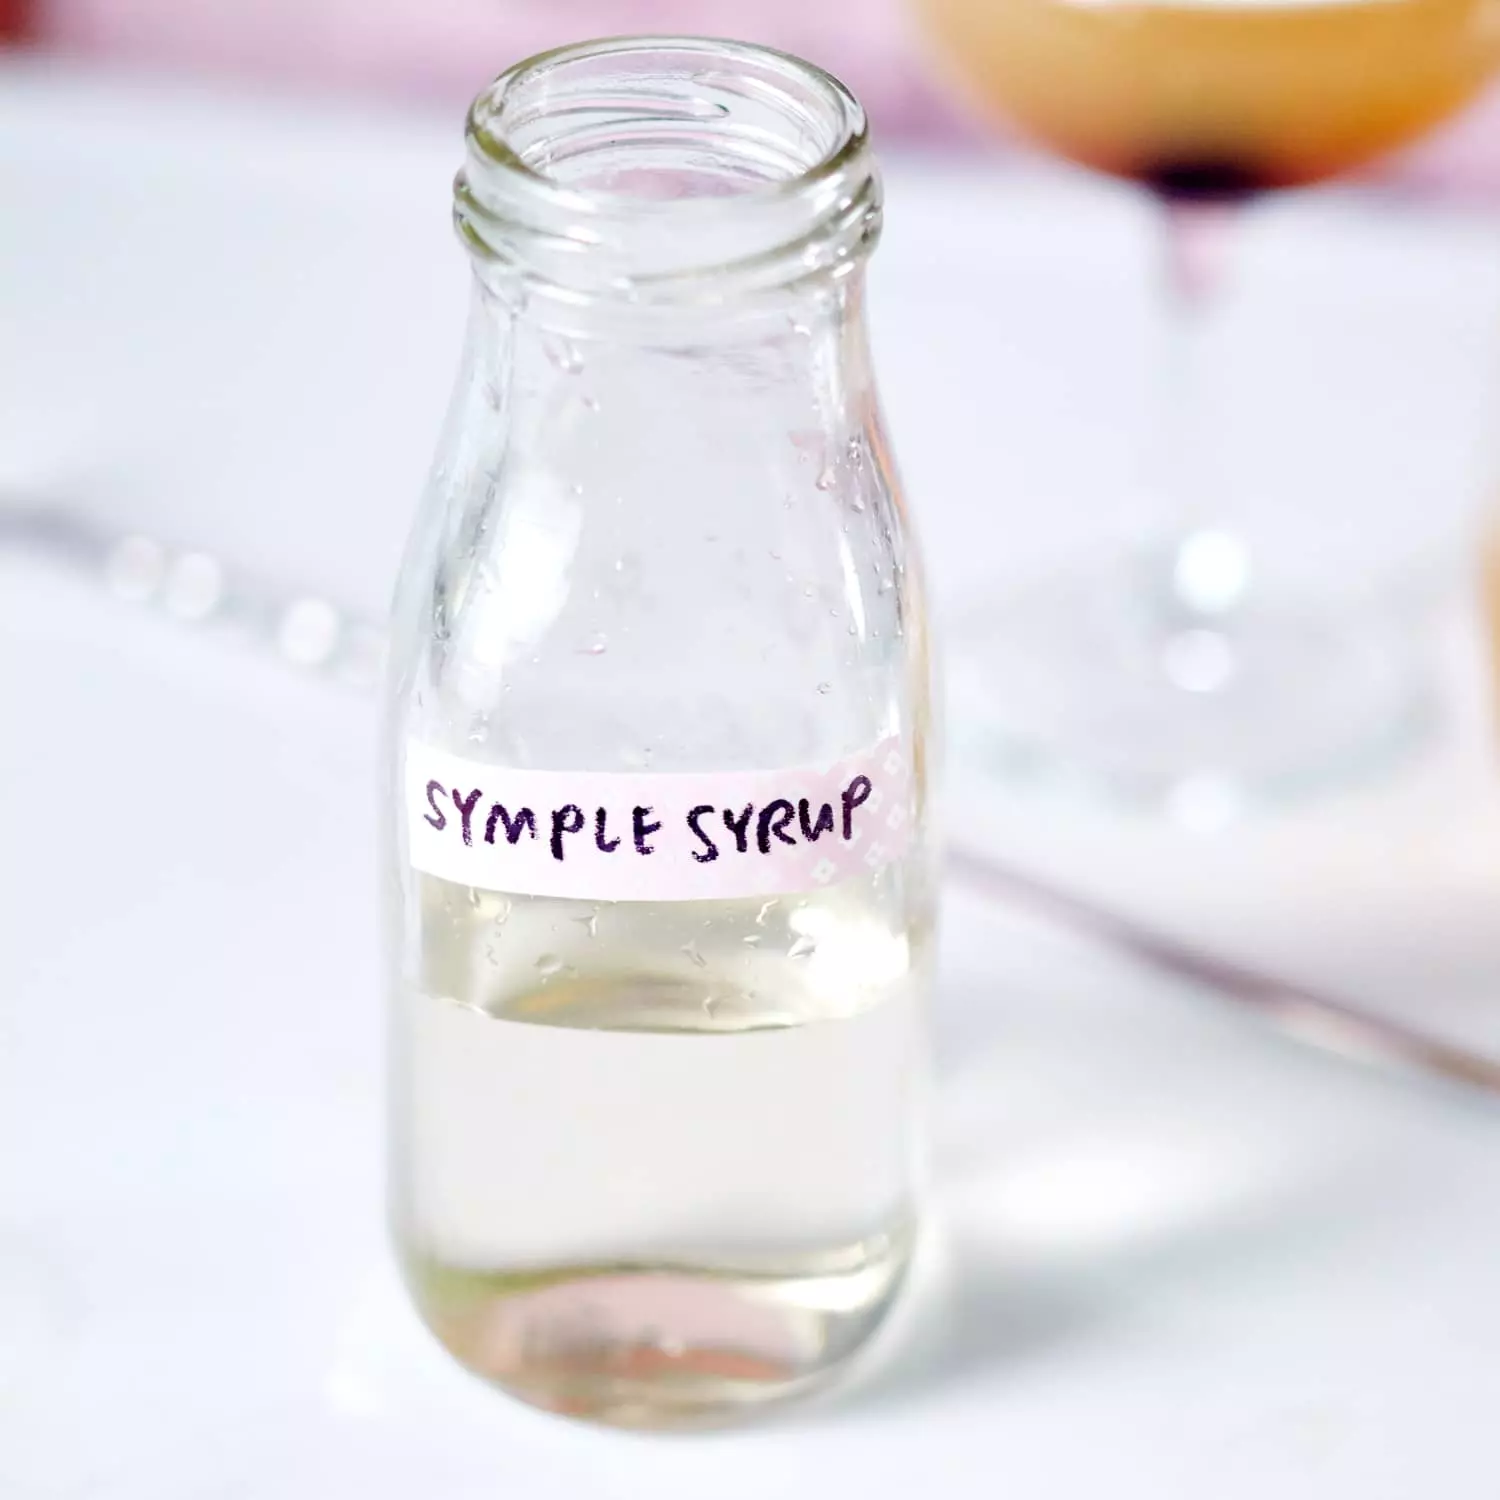 SYMPLE SYRUP